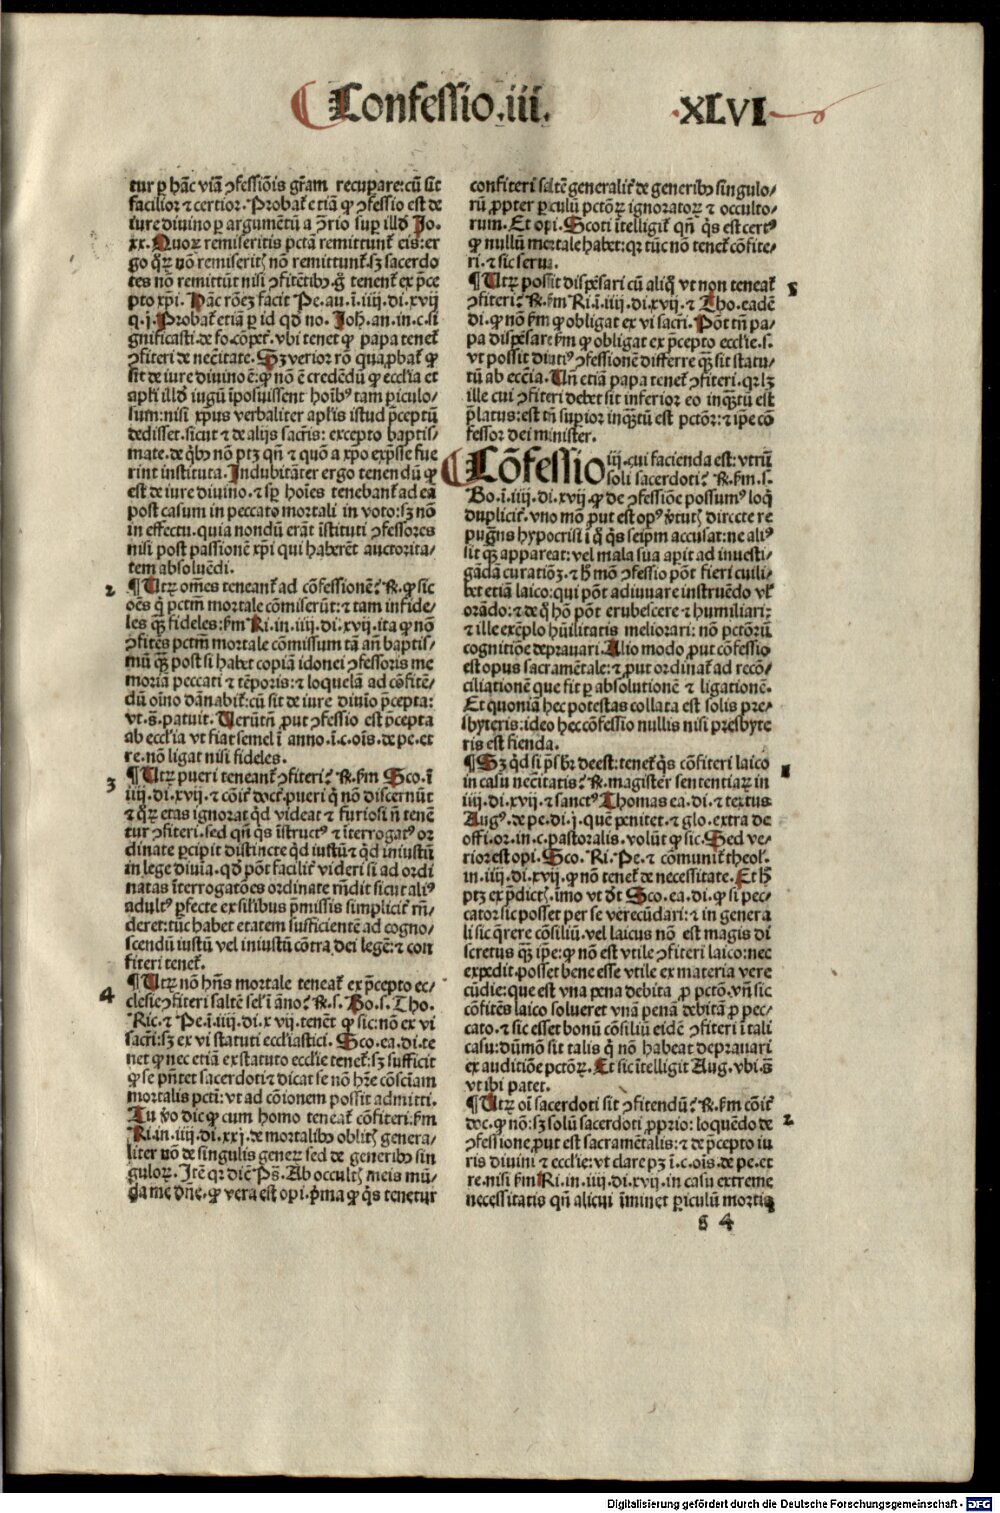 Confessio.iii.
XLVI
tur ꝑ hãc viã ꝯfessiõis gr̃am recuperare:cũ sit
facilior ⁊ certior. Probat̃ etiã ꝙ ꝯfessio est de
iure diuino ꝑ argumẽtũ a ꝯ̃rio sup̱ illd̾ Jo.
xx. Quoꝝ remiseritis pctã remittunt̃ eis:er
go qꝝ nõ remiserit} nõ remittunt̃.sꝫ sacerdo
tes nõ remittũt nisi ꝯfitẽtibꝰ.g̃ tenent̃ ex p̃ce
pto xp̃i. Hãc rõeꝫ facit Pe.au.ĩ.iiij.di.xvij
q.j. Probat̃ etiã ꝑ id qd̾ no. Joh̃.an.in.c.si
gnificasti.de fo.cõpet̃.vbi tenet ꝙ papa tenet̃
ꝯfiteri de necc̃itate. Sꝫ verior rõ qua ꝓbat̃ ꝙ
sit de iure diuino ẽ:qꝛ nõ ẽ credẽdũ ꝙ eccl̃ia et
apl̃i illd̾ iugũ ĩposuissent hoĩbꝰ tam piculo/
sum:nisi xp̃us verbaliter apl̃is istud p̃ceptũ
dedisset.sicut ⁊ de alijs sacr̃is: excepto baptis/
mate.de q̃bꝰ nõ ptꝫ qñ ⁊ quõ a xp̃o exp̃sse fue
rint instituta. Indubitãter ergo tenendũ ꝙ
est de iure diuino.⁊ sp̱ hoĩes tenebant̃ ad ea
post casum in peccato mortali in voto:sꝫ nõ
in effectu.quia nondũ erãt ĩstituti ꝯfessores
nisi post passionẽ xp̃i qui haberẽt auctorita/
tem absoluẽdi.
2
¶ Utꝝ om̃es teneant̃ ad cõfessionẽ? R̃.ꝙ sic
oẽs q̃ pctm̃ mortale cõmiserũt:⁊ tam infide/
les qꝫ fideles:ẜm Ri.in.iiij.di.xvij.ita ꝙ nõ
ꝯfitẽs pctm̃ mortale cõmissum tã añ baptis/
mũ qꝫ post si habet copiã idonei ꝯfessoris me
moriã peccati ⁊ tẽporis:⁊ loquelã ad cõfitẽ/
dũ oĩno dãnabit̃:cũ sit de iure diuĩo p̃cepta:
vt.s̃.patuit. Uerũtñ ꝓut ꝯfessio est p̃cepta
ab eccl̃ia vt fiat semel ĩ anno.ĩ.c.oĩs.de pe.et
re.nõ ligat nisi fideles.
3
¶ Utꝝ pueri teneant̃ ꝯfiteri? R̃.ẜm Sco.ĩ
iiij.di.xvij.⁊ cõit̃ doct̃.pueri q̃ nõ discernũt
⁊ qꝝ etas ignorat qd̾ videat̃ ⁊ furiosi ñ tenẽ
tur ꝯfiteri.sed qñ q̃s ĩstructꝰ ⁊ ĩterrogatꝰ or
dinate ꝑcipit distincte qd̾ iustũ ⁊ qd̾ iniustũ
in lege diuĩa.qd̾ põt facilit̃ videri si ad ordi
natas ĩterrogatões ordinate rñdit sicut aliꝰ
adultꝰ ꝑfecte ex silibus p̃missis simplicit̃ rñ/
deret:tũc habet etatem sufficientẽ ad cogno/
scendũ iustũ vel iniustũ cõtra dei legẽ:⁊ con
fiteri tenet̃.
4
¶ Utꝝ nõ hñs mortale teneat̃ ex p̃cepto ec/
clesie ꝯfiteri saltẽ sel̾ ĩ ãno? R̃.s. Bo.s. Tho.
Ric.⁊ Pe.ĩ.iiij.di.xvij.tenẽt ꝙ sic:nõ ex vi
sacr̃i:sꝫ ex vi statuti eccl̃iastici. Sco.ea.di.te
net ꝙ nec etiã ex statuto eccl̃ie tenet̃:sꝫ sufficit
ꝙ se p̃ñtet sacerdoti ⁊ dicat se nõ hr̃e cõsc̃iam
mortalis pcti:vt ad cõionem possit admitti.
Tu v̾o dic ꝙ cum homo teneat̃ cõfiteri:ẜm
Ri.in.iiij.di.xxj.de mortalibꝰ oblit} genera/
liter nõ de singulis generꝝ sed de generibꝰ sin
guloꝝ. Itẽ qꝛ dic̃ Ps̃. Ab occult} meis mũ/
da me dñe.ꝙ vera est opi.p̃ma ꝙ q̃s tenetur
confiteri saltẽ generalit̃ de generibꝰ singulo/
rũ ꝓpter piculũ pctõꝝ ignoratoꝝ ⁊ occulto/
rum. Et opi. Scoti ĩtelligit̃ qñ q̃s est certꝰ
ꝙ nullũ mortale habet:qꝛ tũc nõ tenet̃ cõfite/
ri.⁊ sic serua.
5
¶ Utꝝ possit dispẽsari cũ aliq̃ vt non teneat̃
ꝯfiteri? R̃.ẜm Ri.ĩ.iiij.di.xvij.⁊ Tho.eadẽ
di.ꝙ nõ ẜm ꝙ obligat ex vi sacr̃i. Põt tñ pa/
pa dispẽsare ẜm ꝙ obligat ex p̃cepto eccl̃ie.s.
vt possit diutiꝰ ꝯfessionẽ differre qꝫ sit statu/
tũ ab ecc̃ia. Uñ etiã papa tenet̃ ꝯfiteri.qꝛ lꝫ
ille cui ꝯfiteri debet sit inferior eo inqꝫtũ est
p̃latus:est tñ supior inqꝫtũ est pctõr:⁊ ip̃e cõ
fessor dei minister.
Cõfessio iij.cui facienda est:vtrũ
soli sacerdoti? R̃.ẜm.s.
Bo.ĩ.iiij.di.xvij.ꝙ de ꝯfessiõe possumꝰ loq̃
duplicit̃.vno mõ ꝓut est opꝰ v̾tut} directe re
pugñs hypocrisi ĩ q̃ q̃s seip̃m accusat:ne aliꝰ
sit qꝫ appareat:vel mala sua apit ad inuesti/
gãdã curatiõꝫ.⁊ h̾ mõ ꝯfessio põt fieri cuili/
bet etiã laico:qui põt adiuuare instruẽdo vl̾
orãdo:⁊ de q̃ hõ põt erubescere ⁊ humiliari:
⁊ ille exẽplo hũilitatis meliorari: nõ pctõrũ
cognitiõe deprauari. Alio modo ꝓut cõfessio
est opus sacramẽtale:⁊ ꝓut ordinat̃ ad recõ/
ciliationẽ que fit ꝑ absolutionẽ ⁊ ligationẽ.
Et quoniã hec potestas collata est solis pre/
sbyteris:ideo hec cõfessio nullis nisi presbyte
ris est fienda.
1
¶ Sꝫ qd̾ si p̃sb̾r deest:tenet̃ q̃s cõfiteri laico
in casu necc̃itatis? R̃.magister sententiaꝝ in
iiij.di.xvij.⁊ sanctꝰ Thomas ea.di.⁊ textus
Augꝰ.de pe.di.j.quẽ penitet.⁊ glo.extra de
offi.or.in.c.pastoralis.volũt ꝙ sic. Sed ve/
rior est opi. Sco. Ri. Pe.⁊ cõmunit̃ theol̾.
in.iiij.di.xvij.ꝙ nõ tenet̃ de necessitate. Et h̾
ptꝫ ex p̃dict}.ĩmo vt d̃t Sco.ea.di.ꝙ si pec/
cator sic posset per se verecũdari:⁊ in genera
li sic q̃rere cõsiliũ.vel laicus nõ est magis di
scretus qꝫ ip̃e:ꝙ nõ est vtile ꝯfiteri laico:nec
expedit.posset bene esse vtile ex materia vere
cũdie:que est vna pena debita ꝓ pctõ.vñ sic
cõfitẽs laico solueret vnã penã debitã ꝓ pec/
cato.⁊ sic esset bonũ cõsiliũ eidẽ ꝯfiteri ĩ tali
casu:dũmõ sit talis q̃ nõ habeat deprauari
ex auditiõe pctõꝝ. Et sic ĩtelligit Aug.vbi.s̃
vt ibi patet.
2
¶ Utꝝ oĩ sacerdoti sit ꝯfitendũ? R̃.ẜm cõit̃
doc.ꝙ nõ:sꝫ solũ sacerdoti ꝓprio: loquẽdo de
ꝯfessione ꝓut est sacramẽtalis:⁊ de p̃cepto iu
ris diuini ⁊ eccl̃ie:vt clare pꝫ ĩ.c.oĩs.de pe.et
re.nisi ẜm Ri.in.iiij.di.xvij.in casu extreme
necessitatis qñ alicui ĩminet piculũ mortis
g 4
Digitalisierung gefördert durch die Deutsche Forschungsgemeinschaft - DFG